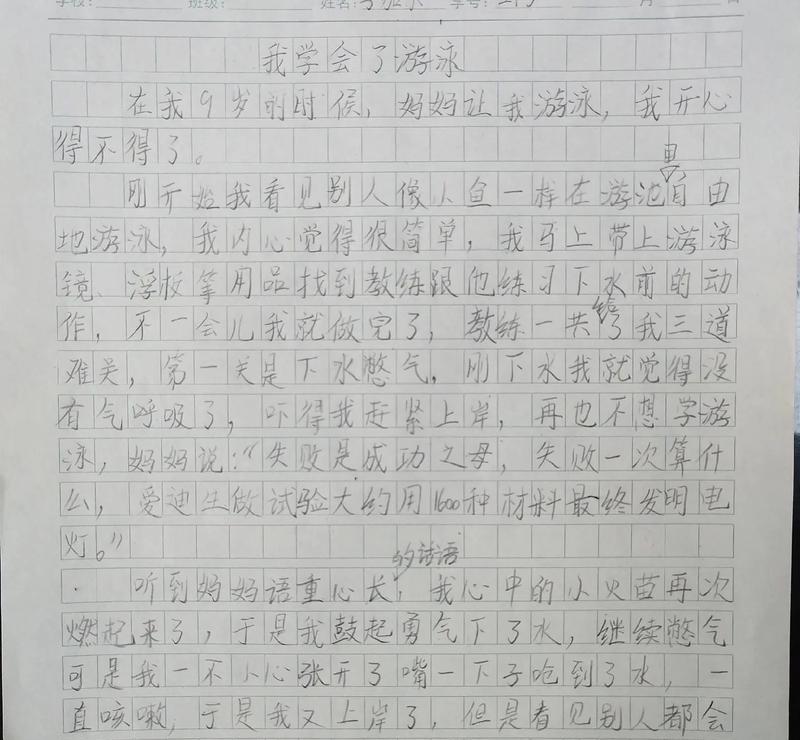 学校： 班级： 姓名： 学号：
我学会了游泳
在我9岁的时候，妈妈让我游泳，我开心
得不得了。
里
刚开始我看见别人像小鱼一样在游池自由
地游泳，我内心觉得很简单，我马上带上游泳
镜、浮板等用品找到教练跟他练习下水前的动
作，不一会儿我就做完了，教练一共给了我三道
难关，第一关是下水憋气，刚下水我就觉得没
有气呼吸了，吓得我赶紧上岸，再也不想学游
泳，妈妈说：“失败是成功之母，失败一次算什
么，爱迪生做试验大约用1600种材料最终发明电
灯。”
的话语
听到妈妈语重心长，我心中的小火苗再次
燃起来了，于是我鼓起勇气下了水，继续憋气
可是我一不小心张开了嘴一下子呛到了水，一
直咳嗽，于是我又上岸了，但是看见别人都会